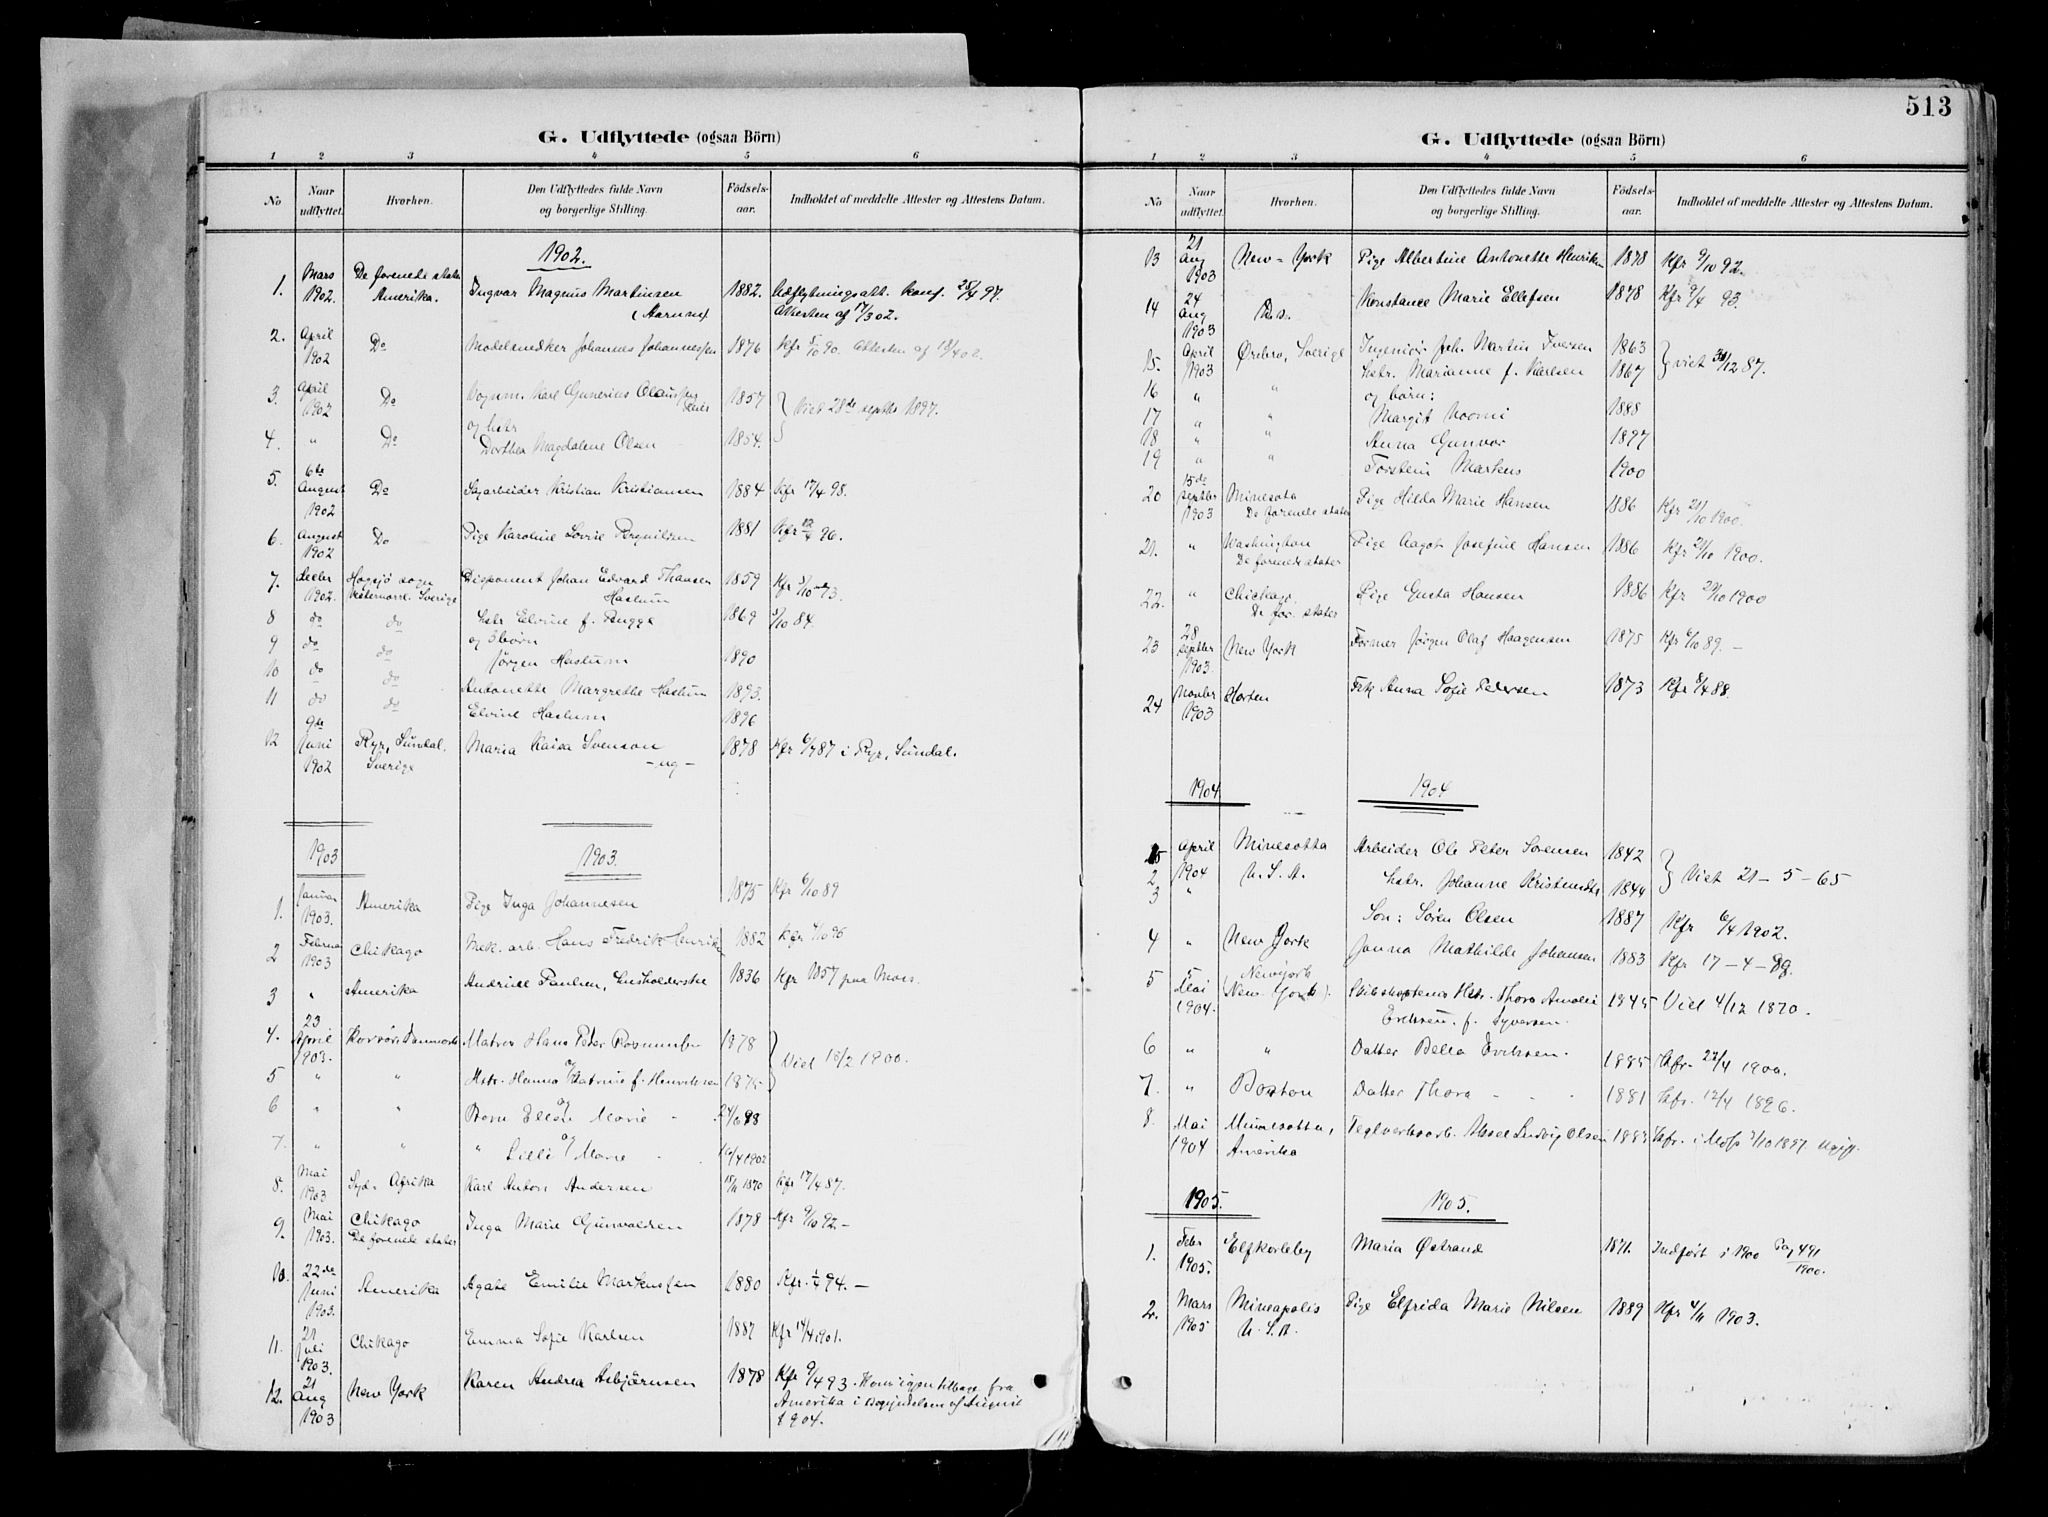 513
G. Udflyttede (ogsaa Börn)
1 2 3 4 5 6
No Naar udflyttet. Hvorhen. Den Udflyttedes fulde Navn og borgerlige Stilling. Födsels-aar. Indholdet af meddelte Attester og Attestens Datum.
1902.
1. Mars 1902. De forenede stater Amerika. Ingvar Magnus Martinsen (Aarum) 1882. Udflytningsatt. konf. 25/4 97. Attesten af 17/3 02.
2. April 1902 Do Modelsnedker Johannes Johannessen 1876 Kfr 5/10 90. Attesten af 18/4 02.
3. April 1902 Do Vognm. Karl Gunerius Olaussen 1857 Viet 28de septbr 1897.
og hstr
4. " Do Dorthea Magdalene Olsen 1854.
5. 6te August 1902 Do Sagarbeider Kristian Kristiansen 1884 Kfr 17/4 98.
6. August 1902 Do Pige Karoline Lovise 1881 Kfr 12/4 96.
7. 1902. Hogsjö sogn Vesternorrl. Sverige Disponent Johan Edvard Thansen Haslum 1859 Kfr 5/10 73.
8 do do hstr Elvine f. Bugge 1869 5/10 84.
9 do do og 3 børn Jørgen Haslum 1890
10 do do Antonette Margrethe Haslum 1893.
11 do do Elvine Haslum 1896
12 9de Juni 1902 Ryr, Sundal. Sverige Maria Kaisa Svenson -ug- 1878 Kfr 6/7 87 i Ryr, Sundal.
1903 1903.
1. Januar 1903. Amerika Pige Inga Johannesen 1875 Kfr 6/10 89
2 Februar 1903 Chikago Mek. arb. Hans Fredrik Henriksen 1882 Kfr 4/10 96
3 " Amerika Andrine Paulsen, husholderske 1836 Kfr 1857 paa Moss.
4. 23 April 1903. Korsör Danmark Matros Hans Peter Rasmussen 1878 Viet 18/2 1900.
5 " " Hstr. Hanna Katrine f. Henriksen 1875
6 " " Born Ellen Marie " 24/6 98
7. " " " Lilli Marie 16/4 1902
8. Mai 1903 Syd-Afrika Karl Anton Andersen 15/11 1870 Kfr 17/4 87.
9. Mai 1903. Chikago De forenete stater Inga Marie Gunvaldsen 1878 Kfr 9/10 92 -
10. 22de Juni 1903. Amerika Agate Emilie Markussen 1880 Kfr. 1/4 94. -
11. 21 Juli 1903. Chikago Emma Sofie Karlsen 1887 Kfr 14/4 1901.
12. 21 Aug 1903 New York Karen Andrea Asbjørnsen 1878 Kfr 9/4 93. Kom igjen tilbage fra Amerika i Begyndelsen af August 1904.
G. Udflyttede (ogsaa Börn)
1 2 3 4 5 6
No Naar udflyttet. Hvorhen. Den Udflyttedes fulde Navn og borgerlige Stilling. Födsels-aar. Indholdet af meddelte Attester og Attestens Datum.
13 21 Aug 1903 New-York Pige Albertine Antonette Henriksen 1878 Kfr 9/10 92.
14 24 Aug 1903 Do. Konstance Marie Ellefsen 1878 Kfr 9/4 93.
15 April 1903 Ørebro, Sverige Ingeniör Joh. Martin Iversen 1863 viet 30/12 87.
16 " " hstr. Marianne f. Karlsen 1867
og børn:
17 " " Margit Noomi 1888
18 " " Anna Gunvor 1897
19 " " Torstein Markus 1900
20 15de septbr 1903 Minesota De forenede stater Pige Hilda Marie Hansen 1886 Kfr 21/10 1900.
21. " Washington De forenede stater Pige Aagot Josefine Hansen 1886 Kfr 21/10 1900.
22. " Chickago De for. stater Pige Gusta Hansen 1886 Kfr 21/10 1900
23 28 septbr 1903. New York Former Jørgen Olaf Haagensen 1875 Kfr 6/10 89. -
24 Novbr 1903 Horten Frk Anna Sofie Pedersen 1873 Kfr 8/4 88.
1904. 1904
April 1904 Minesotta U.S.A. Arbeider Ole Peter Sorensen 1842 Viet 21 - 5 - 65
2 hstr. Johanne Kristensdtr 1844
3 " Son: Sören Olsen 1887 Kfr 6/4 1902.
4 " New York Janna Mathilde Johansen 1883 Kfr 17 - 4 - 98.
5 5 Mai 1904. Newyork (New York). Skibskaptens Hstr. Thora Amalie Eriksen f. Syversen. 1845 Viet 4/12 1870.
6 " " Datter Bella Eriksen. 1885 Kfr. 22/4 1900.
7. " Boston Datter Thora " " 1881 Kfr. 12/4 1896.
8. Mai 1904 Minnesotta, Amerika Teglverksarb. Aksel Ludvig Olsen 1883 Kfr. i Moss 3/10 1897. Ugift.
1905. 1905.
1. Febr 1905. Elfkarleby Maria Østrand 1871. Indført i 1900 Pag 491 1900.
2. Mars 1905 Mineapolis U.S.A. Pige Elfrida Marie Nilsen 1889 Kfr 4/11 1903.